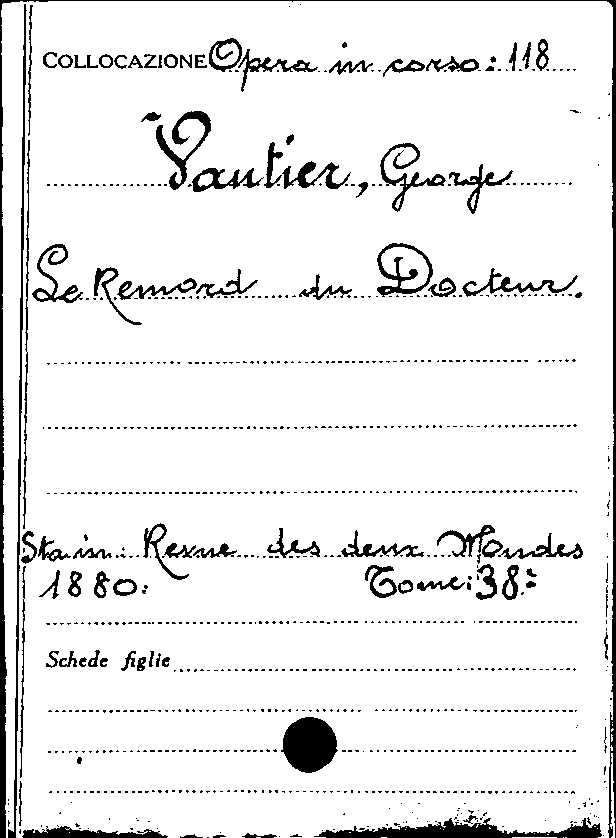 COLLOCAZIONE Opera in corso: 118
Vautier, George
Le Remord du Docteur.
Sta in: Revue des deux Mondes
1880: Tome: 38:
Schede figlie